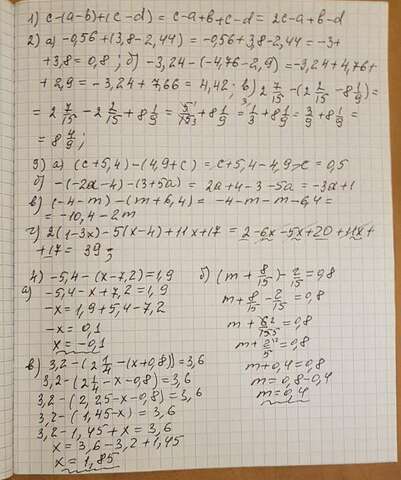 1) c-(a-b)+(c-d) = c-a+b+c-d = 2c-a+b-d
2) а) -0,56+(3,8-2,44) = -0,56+3,8-2,44 = -3+
+3,8 = 0,8; б) -3,24-(-4,76-2,9) = -3,24+4,76+
+2,9 = -3,24+7,66 = 4,42; в) 2 7/15 - (2 2/15 - 8 1/9) =
= 2 7/15 - 2 2/15 + 8 1/9 = 5/15 + 8 1/9 = 1/3 + 8 1/9 = 3/9 + 8 1/9 =
= 8 4/9;
3) а) (c+5,4)-(4,9+c) = c+5,4-4,9-c = 0,5
б) -(-2a-4)-(3+5a) = 2a+4-3-5a = -3a+1
в) (-4-m)-(m+6,4) = -4-m-m-6,4 =
= -10,4-2m
г) 2(1-3x)-5(x-4)+11x+17 = 2-6x-5x+20+11x+
+17 = 39;
4) -5,4-(x-7,2)=1,9
а) -5,4-x+7,2=1,9
-x=1,9+5,4-7,2
-x=0,1
x=-0,1
в) 3,2-(2 1/4-(x+0,8))=3,6
3,2-(2 1/4-x-0,8)=3,6
3,2-(2,25-x-0,8)=3,6
3,2-(1,45-x)=3,6
3,2-1,45+x=3,6
x=3,6-3,2+1,45
x=1,85
б) (m+8/15)-2/15=0,8
m+8/15-2/15=0,8
m+6/15=0,8
m+2/5=0,8
m+0,4=0,8
m=0,8-0,4
m=0,4